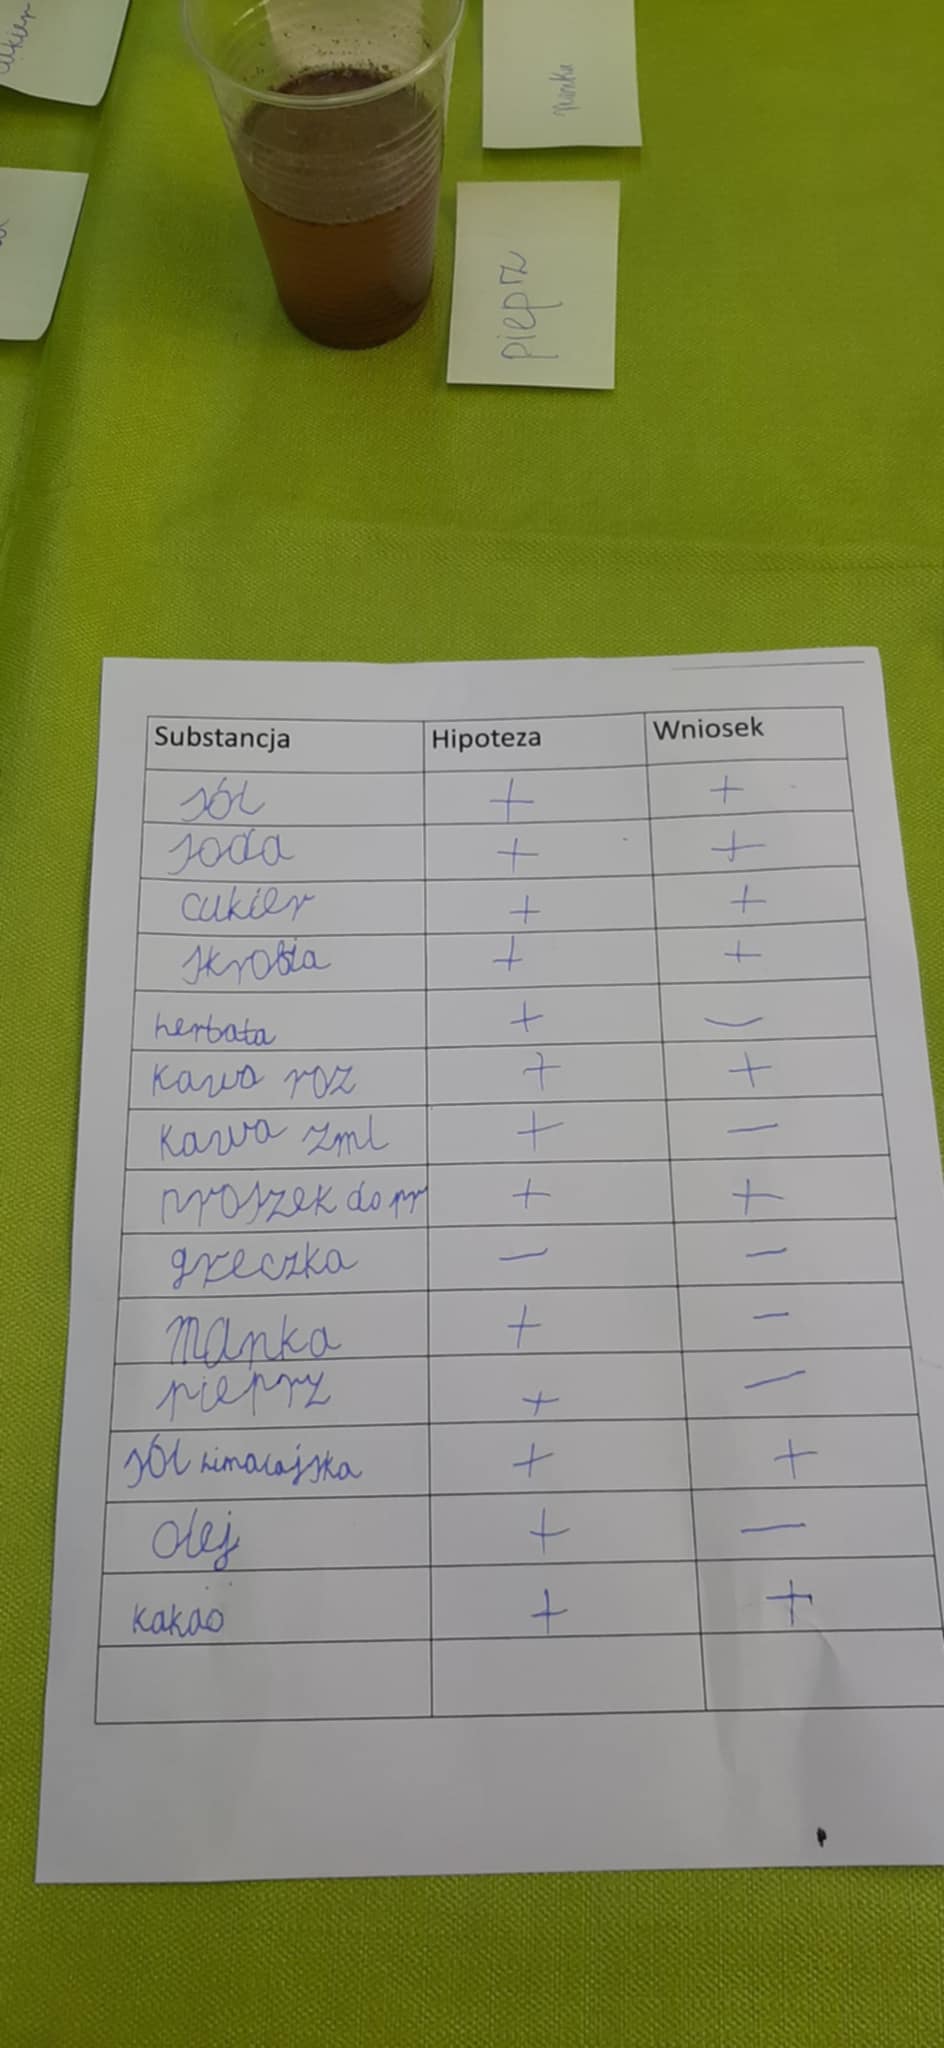 cukier
pieprz
Substancja Hipoteza Wniosek
sól + +
soda + +
cukier + +
skrobia + +
herbata + -
kawa roz + +
kawa zml + -
proszek do pr + +
greczka - -
manka + -
pieprz + -
sól himalajska + +
olej + -
kakao + +